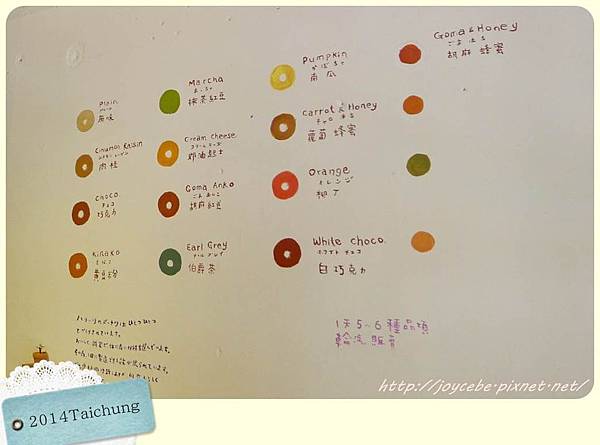 Plain
プレーン
原味
Cinamon Raisin
シナモンレーズン
肉桂
Choco
チョコ
巧克力
Kinako
きなこ
黄豆粉
Marcha
まっちゃ
抹茶紅豆
Cream Cheese
クリームチーズ
奶油起士
Goma Anko
ごまあんこ
胡麻紅豆
Earl Grey
アールグレイ
伯爵茶
Pumpkin
かぼちゃ
南瓜
Carrot & Honey
蘿蔔 蜂蜜
Orange
オレンジ
柳丁
White Choco
ホワイト チョコ
白巧克力
Goma & Honey
胡麻 蜂蜜
1天5~6種品項
輪流販賣
http://joycebe.pixnet.net/
2014Taichung